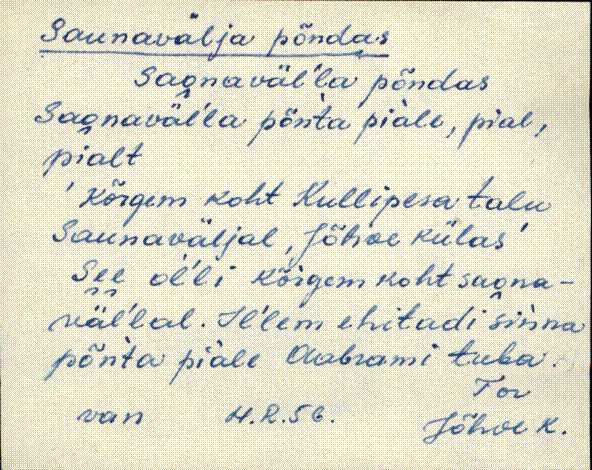 Saunavälja põndas
Sao̭naväl'l'a põndas
Sao̭naväl'l'a põn'ta piàle, pial,
pialt
'Kõrgem koht Kullipesa talu
Saunaväljal, Jõhve külas'
See ol'l'i kõrgem koht sao̭na-
väl'l'al. Il'lem ehitadi sin̆na
põn'ta piàle Aabrami tuba.
Tor
van H.R.56. Jõhve k.